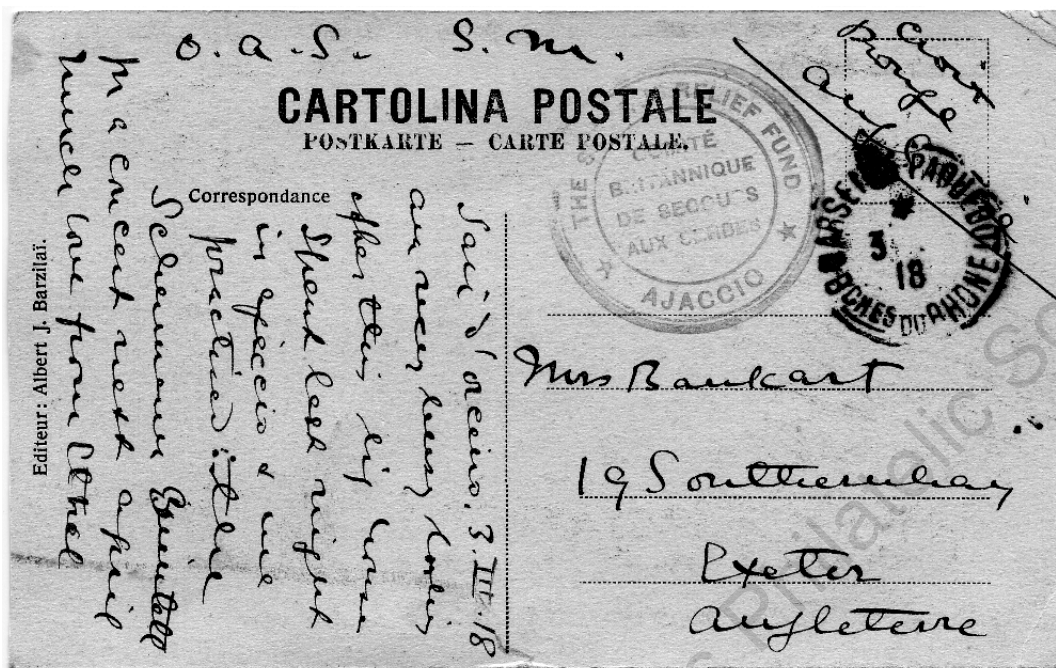 O. A. S. S. M.
Croix
Rouge
CARTOLINA POSTALE
POSTKARTE — CARTE POSTALE.
THE RELIEF FUND
AJACCIO
COMITÉ
BRITANNIQUE
DE SECOURS
AUX SERBES
MARSEILLE PAQUEBOT
3
18
BCHES DU RHONE
Correspondance
Editeur: Albert J. Barzilaï.
3.III.18
am very busy
after this big house
Spent last night
in ajaccio & we
practised the
Schumann Quintett
concert next april
much love from Ethel
Mrs Bankart
19 Southernhay
Exeter
Angleterre
Philatelic